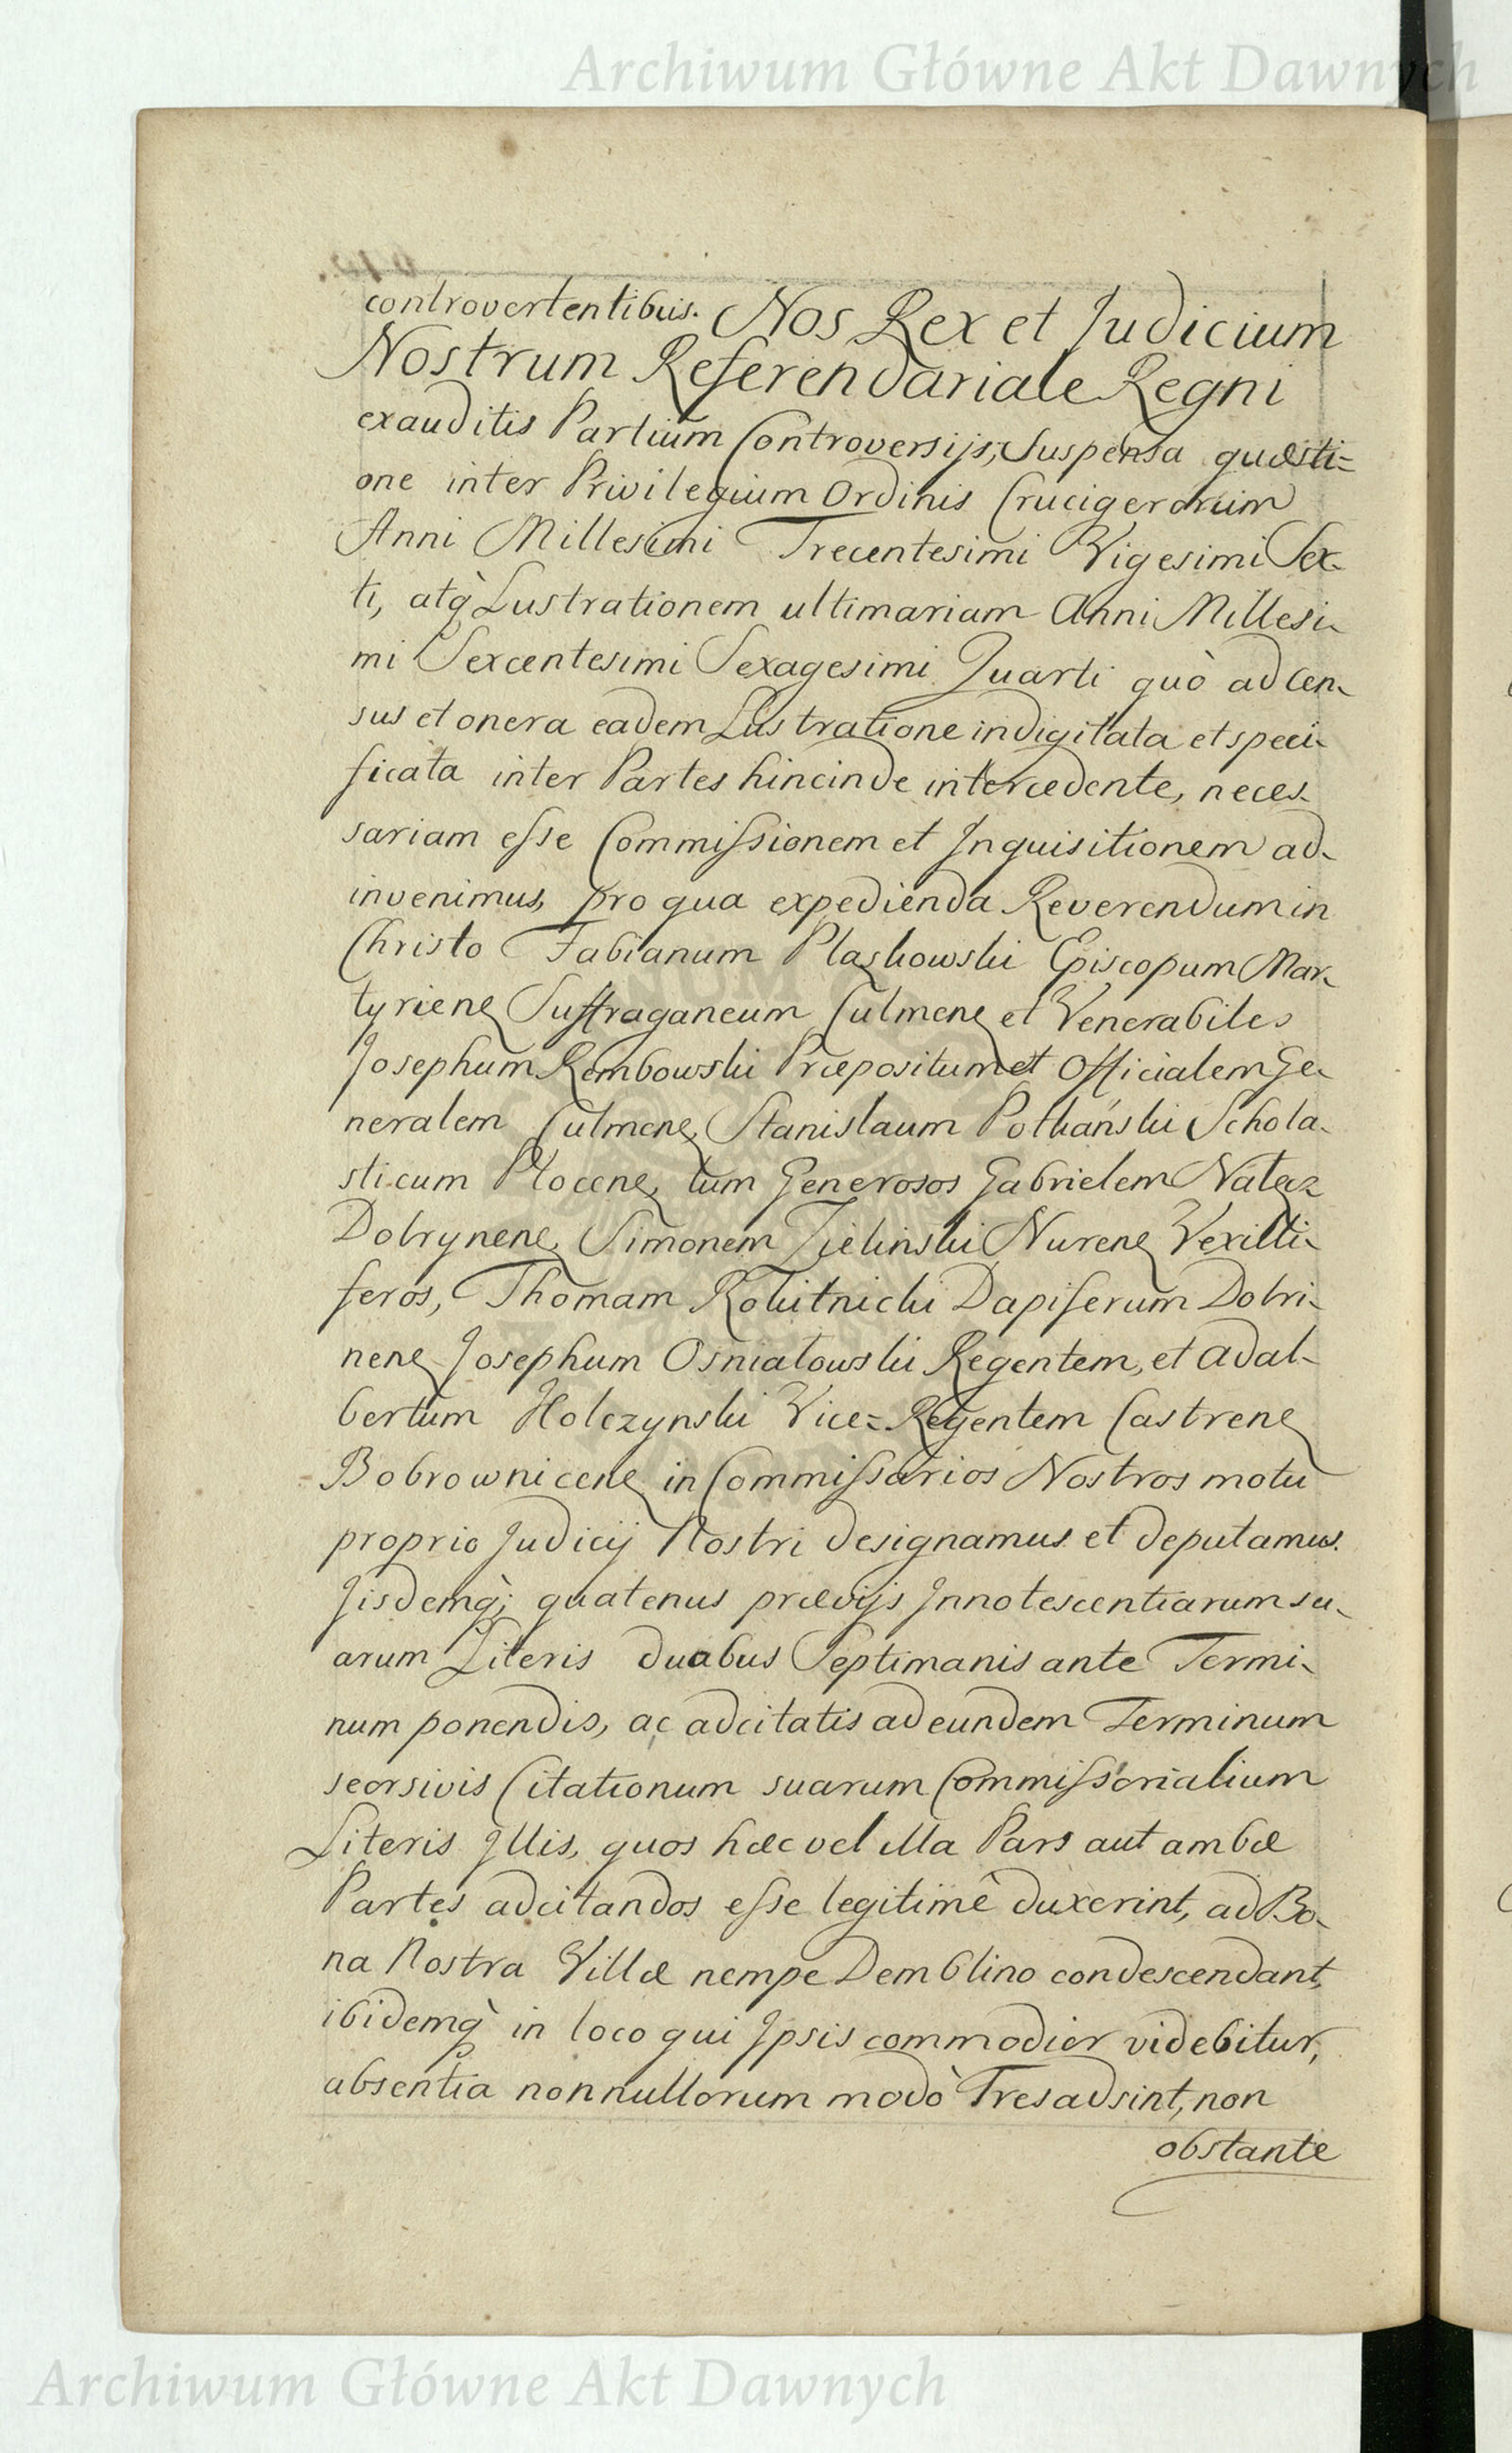 Archiwum Główne Akt Dawnych
controvertentibus. Nos Rex et Judicium
Nostrum Referendariale Regni
exauditis Partium Controversijs, Suspensa quæsti=
one inter Privilegium Ordinis Crucigerorum
Anni Millesimi Trecentesimi Vigesimi Sex-
ti, atq̀ Lustrationem ultimariam Anni Millesi-
mi Sexcentesimi Sexagesimi Quarti quò ad Cen-
sus et onera eadem Lustratione indigitata et speci-
ficata inter Partes hincinde intercedente, neces-
sariam esse Commissionem et Inquisitionem ad-
invenimus, pro qua expedienda Reverendum in
Christo Fabianum Pląskowski Episcopum Mar-
tyrienẹ Suffraganeum Culmenẹ et Venerabiles
Josephum Rembowski Præpositum et Officialem Ge-
neralem Culmenẹ, Stanislaum Potkański Schola-
sticum Plocenẹ, tum Generosos Gabrielem Nałęcz
Dobrynenẹ, Simonem Zielinski Nurenẹ Vexilli-
feros, Thomam Rokitnicki Dapiferum Dobri-
nenẹ Josephum Osniałowski Regentem, et Adal-
bertum Holczynski Vice=Regentem Castrenẹ
Bobrownicenẹ in Commissarios Nostros motu
proprio Judicij Nostri designamus et deputamus.
Jisdemq̀; quatenus prævijs Innotescentiarum su-
arum Literis duabus Septimanis ante Termi-
num ponendis, ac adcitatis ad eundem Terminum
seorsivis Citationum suarum Commissorialium
Literis Illis, quos hæc vel illa Pars aut ambæ
Partes adcitandos esse legitimè duxerint, ad Bo-
na Nostra Villæ nempe Demblino condescendant,
ibidemq̀ in loco qui Ipsis commodior videbitur,
absentia nonnullorum modò Tres adsint, non
obstante
Archiwum Główne Akt Dawnych